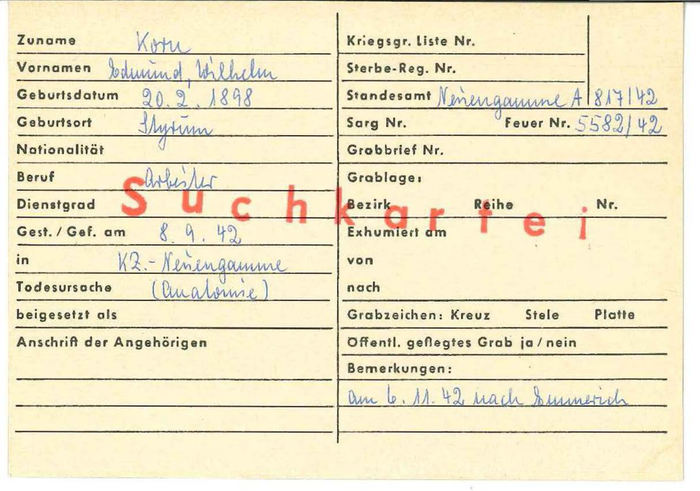 Zuname Korn
Vornamen Edmund, Wilhelm
Geburtsdatum 20.2.1898
Geburtsort Styrum
Nationalität
Beruf Arbeiter
Dienstgrad
Gest./Gef. am 8.9.42
in KZ.-Neuengamme
Todesursache (Anatomie)
beigesetzt als
Anschrift der Angehörigen
Suchkartei
Kriegsgr. Liste Nr.
Sterbe-Reg. Nr.
Standesamt Neuengamme A/817/42
Sarg Nr. Feuer Nr. 5582/42
Grabbrief Nr.
Grablage:
Bezirk Reihe Nr.
Exhumiert am
von
nach
Grabzeichen: Kreuz Stele Platte
Öffentl. geflegtes Grab ja/nein
Bemerkungen:
am 6.11.42 nach Emmerich